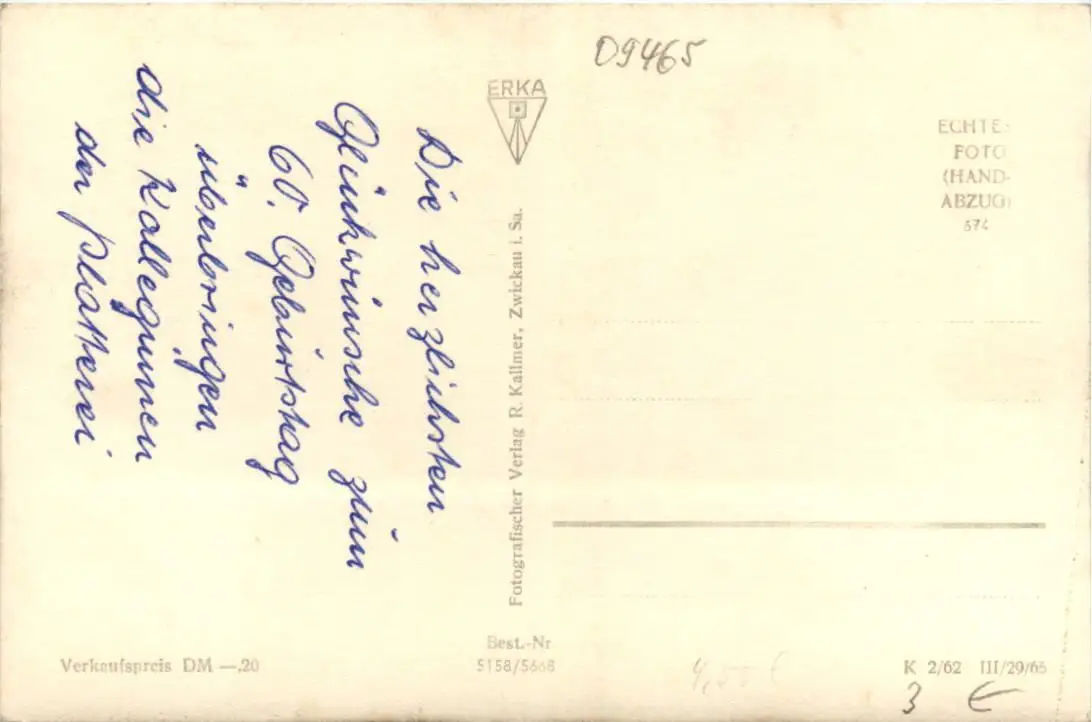 Die herzlichsten
Glückwünsche zum
60. Geburtstag
überbringen
die Kolleginnen
der Plätterei
09465
ERKA
ECHTES
FOTO
(HAND-
ABZUG)
674
Fotografischer Verlag R. Kallmer, Zwickau i. Sa.
Verkaufspreis DM —,20
Best.-Nr
5158/5668
K 2/62 III/29/65
4,50 €
3 €